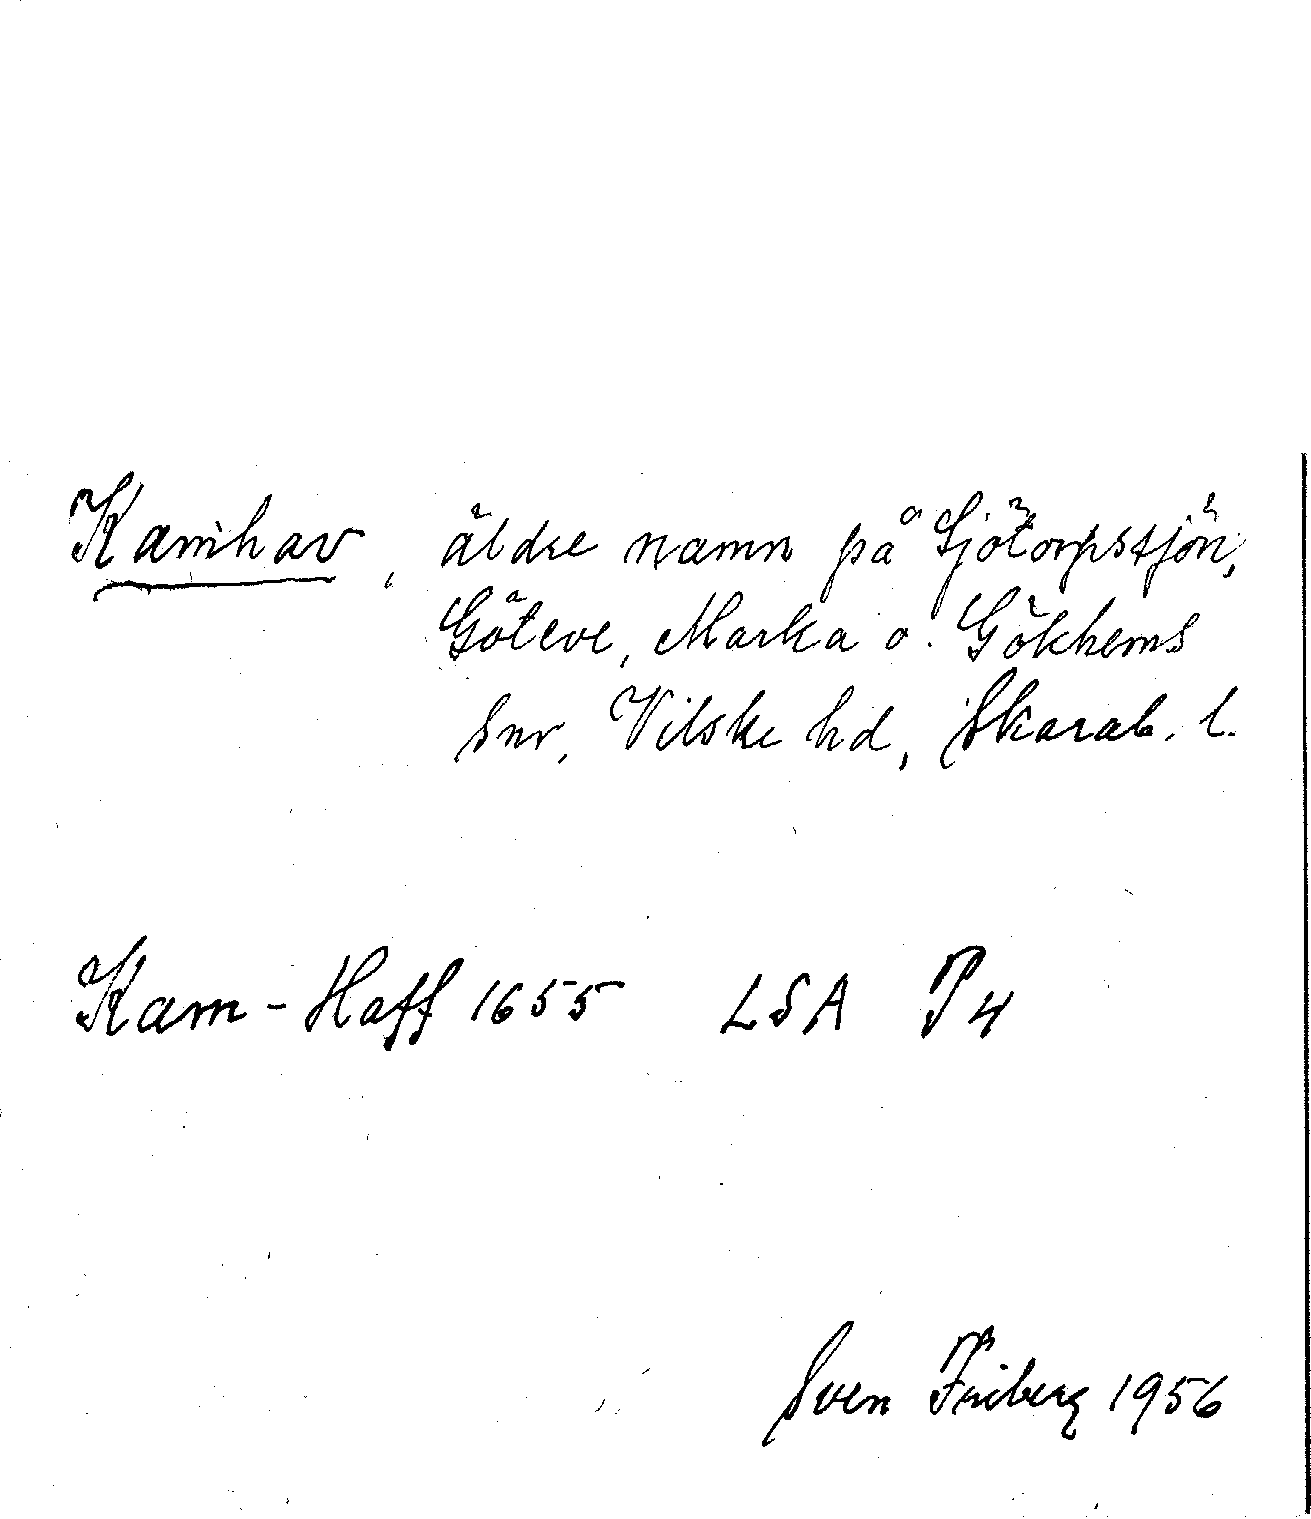 Kamhav, äldre namn på Sjötorpstjön,
Göteve, Marka o. Gökhems
snr, Vilske hd, Skarab. l.
Kam-Haff 1655 LSA P4
Sven Friberg 1956